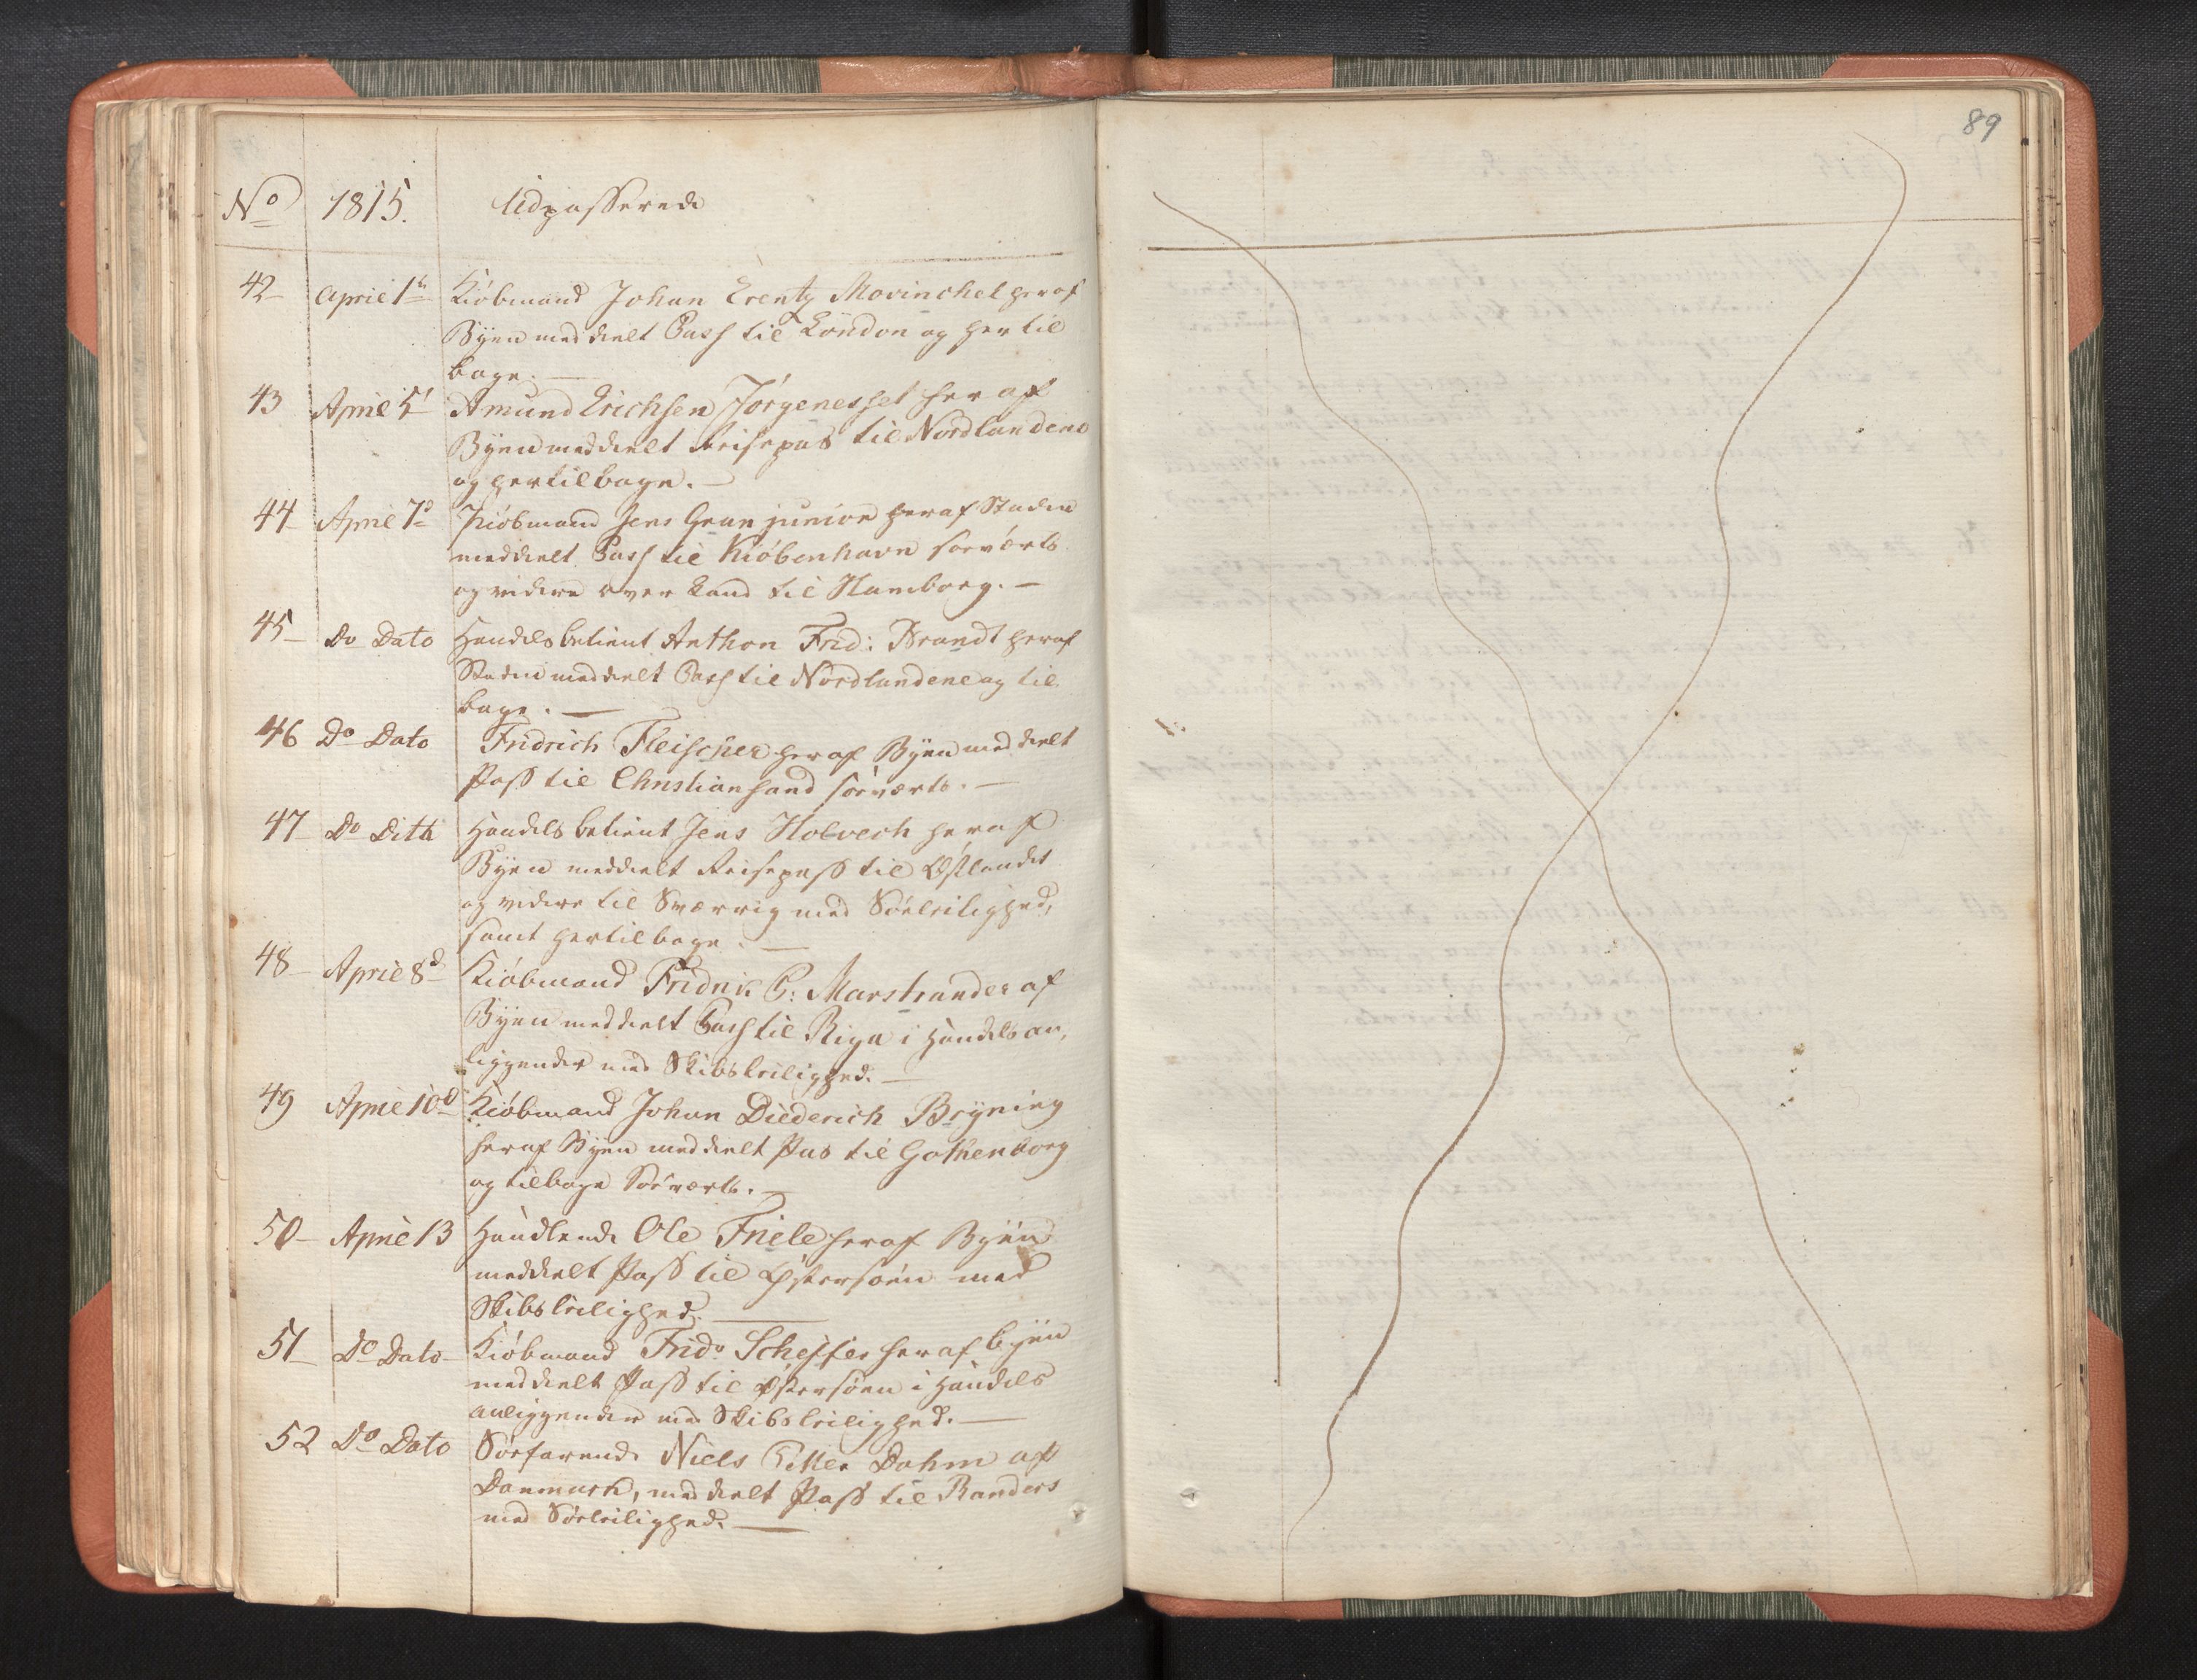 89
No 1815. Udpasserede
42 April 1te Kiöbmand Johan Lrentz Mowinchel heraf
Byen meddeelt Pass til London og her til
bage. —
43 April 5t Amund Erichsen Jörgenesset her af
Byen meddeelt Reisepas til Nordlandene
og hertilbage. —
44 April 7de Kiöbmand Jens Gran junior heraf Staden
meddeelt Pass til Kiöbenhavn söeværts
og videre over Land til Hamborg. —
45 Do Dato Handelsbetient Anthon Frid: Brandt heraf
Staden meddeelt Pass til Nordlandene og til
bage. —
46 Do Dato Fridrich Fleischer her af Byen meddeelt
Pass til Christiansand söeværts. —
47 Do Dito Handels betient Jens Holvech heraf
Byen meddeelt Reisepass til Östlandet
og videre til Sverrig med Söeleilighed,
samt hertilbage. —
48 April 8d Kiöbmand Fridrik C: Marstrander af
Byen meddeelt Pass til Riga i Handels an,
liggender med Skibsleilighed. —
49 April 10d Kiöbmand Johan Diederich Bryning
heraf Byen meddeelt Pas til Gothenborg
og tilbage Söeværts. —
50 April 13 Handlende Ole Friele heraf Byen
meddeelt Pass til Östersöen med
Skibsleilighed. —
51 Do Dato Kiöbmand Frid. Scheffer her af byen
meddeelt Pass til Östersöen i Handels
anliggender med Skibsleilighed. —
52 Do Dato Söefarende Niels Dahm af
Danmark, meddeelt Pass til Randers
med Söeleilighed. —